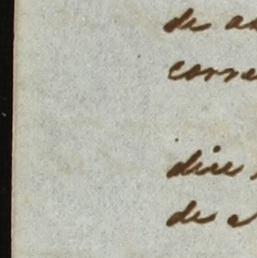 de
corre
dire
de